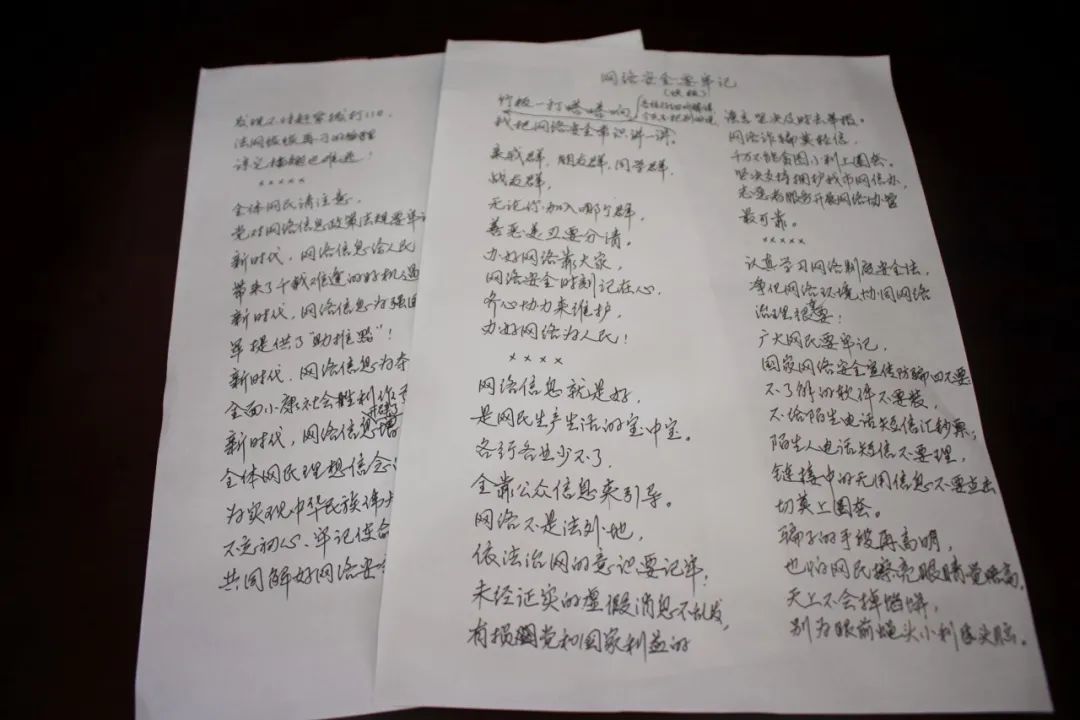 网络安全要牢记
(快板)
竹板一打嗒嗒响
我把网络安全常识讲一讲。
亲戚群,朋友群,同学群,
战友群,
无论你加入哪个群,
善恶是丑要分清。
办好网络靠大家,
网络安全时刻记在心,
齐心协力来维护,
办好网络为人民!
××××
网络信息就是好,
是网民生产生活的宝中宝。
各行各业少不了,
全靠公众信息来引导。
网络不是法外地,
依法治网的意识要记牢;
未经证实的虚假消息不乱发,
有损党和国家利益的
谣言坚决及时去举报。
网络诈骗莫轻信,
千万不能贪图小利上圈套。
坚决支持拥护我市网信办,
志愿者服务开展网络协管
最可靠。
×××××
认真学习网络制度安全法,
净化网络环境协同网络
治理很重要!
广大网民要牢记,
国家网络安全宣传防骗四不要
不了解的软件不要装,
不给陌生电话短信汇钞票;
陌生人电话短信不要理,
链接中的无用信息不要点击
切莫上圈套。
骗子的手段再高明,
也怕网民擦亮眼睛觉悟高,
天上不会掉馅饼,
别为眼前蝇头小利
发现不对赶紧拨打110,
法网恢恢再刁的
诈骗也难逃!
×××××
全体网民请注意,
党对网络信息政策法规要牢
新时代,网络信息给人民
带来了千载难逢的好机遇
新时代,网络信息为强国
军提供了“助推器”!
新时代,网络信息为夺
全面小康社会胜利
新时代,网络信息增
全体网民理想信念
为实现中华民族伟大
不忘初心、牢记使命
共同